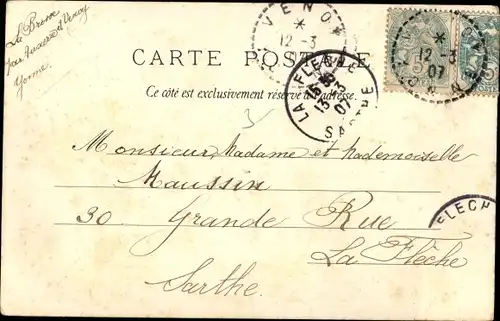 La Brosse
par Auxerre et Venoy
Yonne
VENOY
12 -3
07
CARTE POSTALE
LA FLECHE
13 -3
07
SARTHE
Ce côté est exclusivement réservé à l'adresse.
Monsieur, Madame et Mademoiselle
Maussin
30 Grande Rue
La Flèche
Sarthe.
FLECH